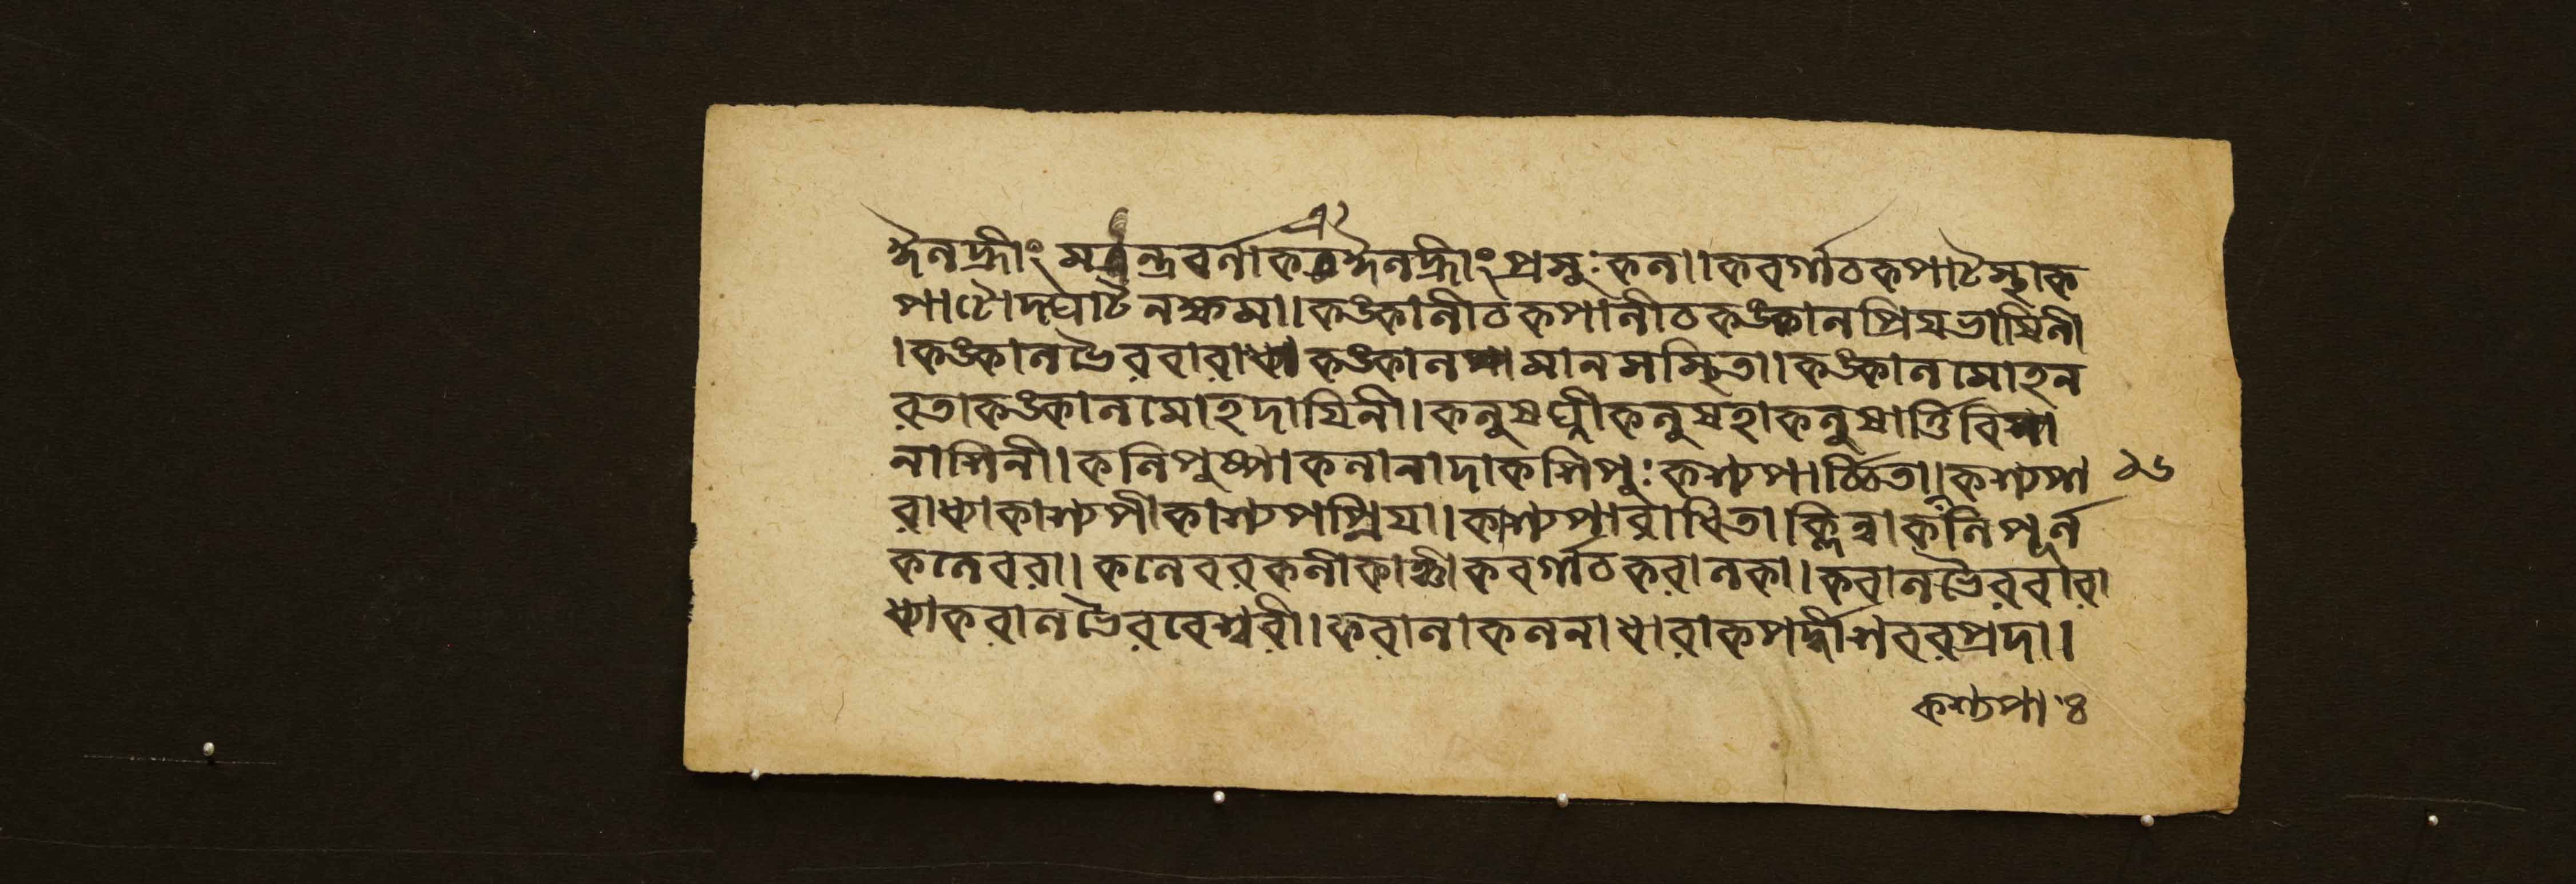 ঈনহ্রীং মন্ত্রবর্নাকঈনহ্রীং প্রসুঃকন॥কবর্গাঠকপাটস্থাক
পাটোদঘাটনক্ষমা॥কঙ্কানীঠকপানীঠকঙ্কানপ্রিয়ভাষিনী
।কঙ্কানভৈরবারাধ্যাকঙ্কানমানসস্থিতা।কঙ্কানমোহন
রতাকঙ্কানমোহদায়িনী॥কনুষঘ্নীকনুষহাকনুষার্ত্তিবি
নাশিনী॥কনিপুষ্পাকনানাদাকশিপুঃকশ্যপার্চ্চিতা॥কশ্যপা ১৬
রাধ্যাকাশ্যপীকাশ্যপপ্রিয়া।কাশ্যপারাধিতা
কনেবরা।কনেবরকনীকাঞ্চীকবর্গাঠকরানকা।করানভৈরবারা
ধ্যাকরানভৈরবেশ্বরী।করানাকননাধারাকপর্দ্দীশবরপ্রদা।
কশ্যপা